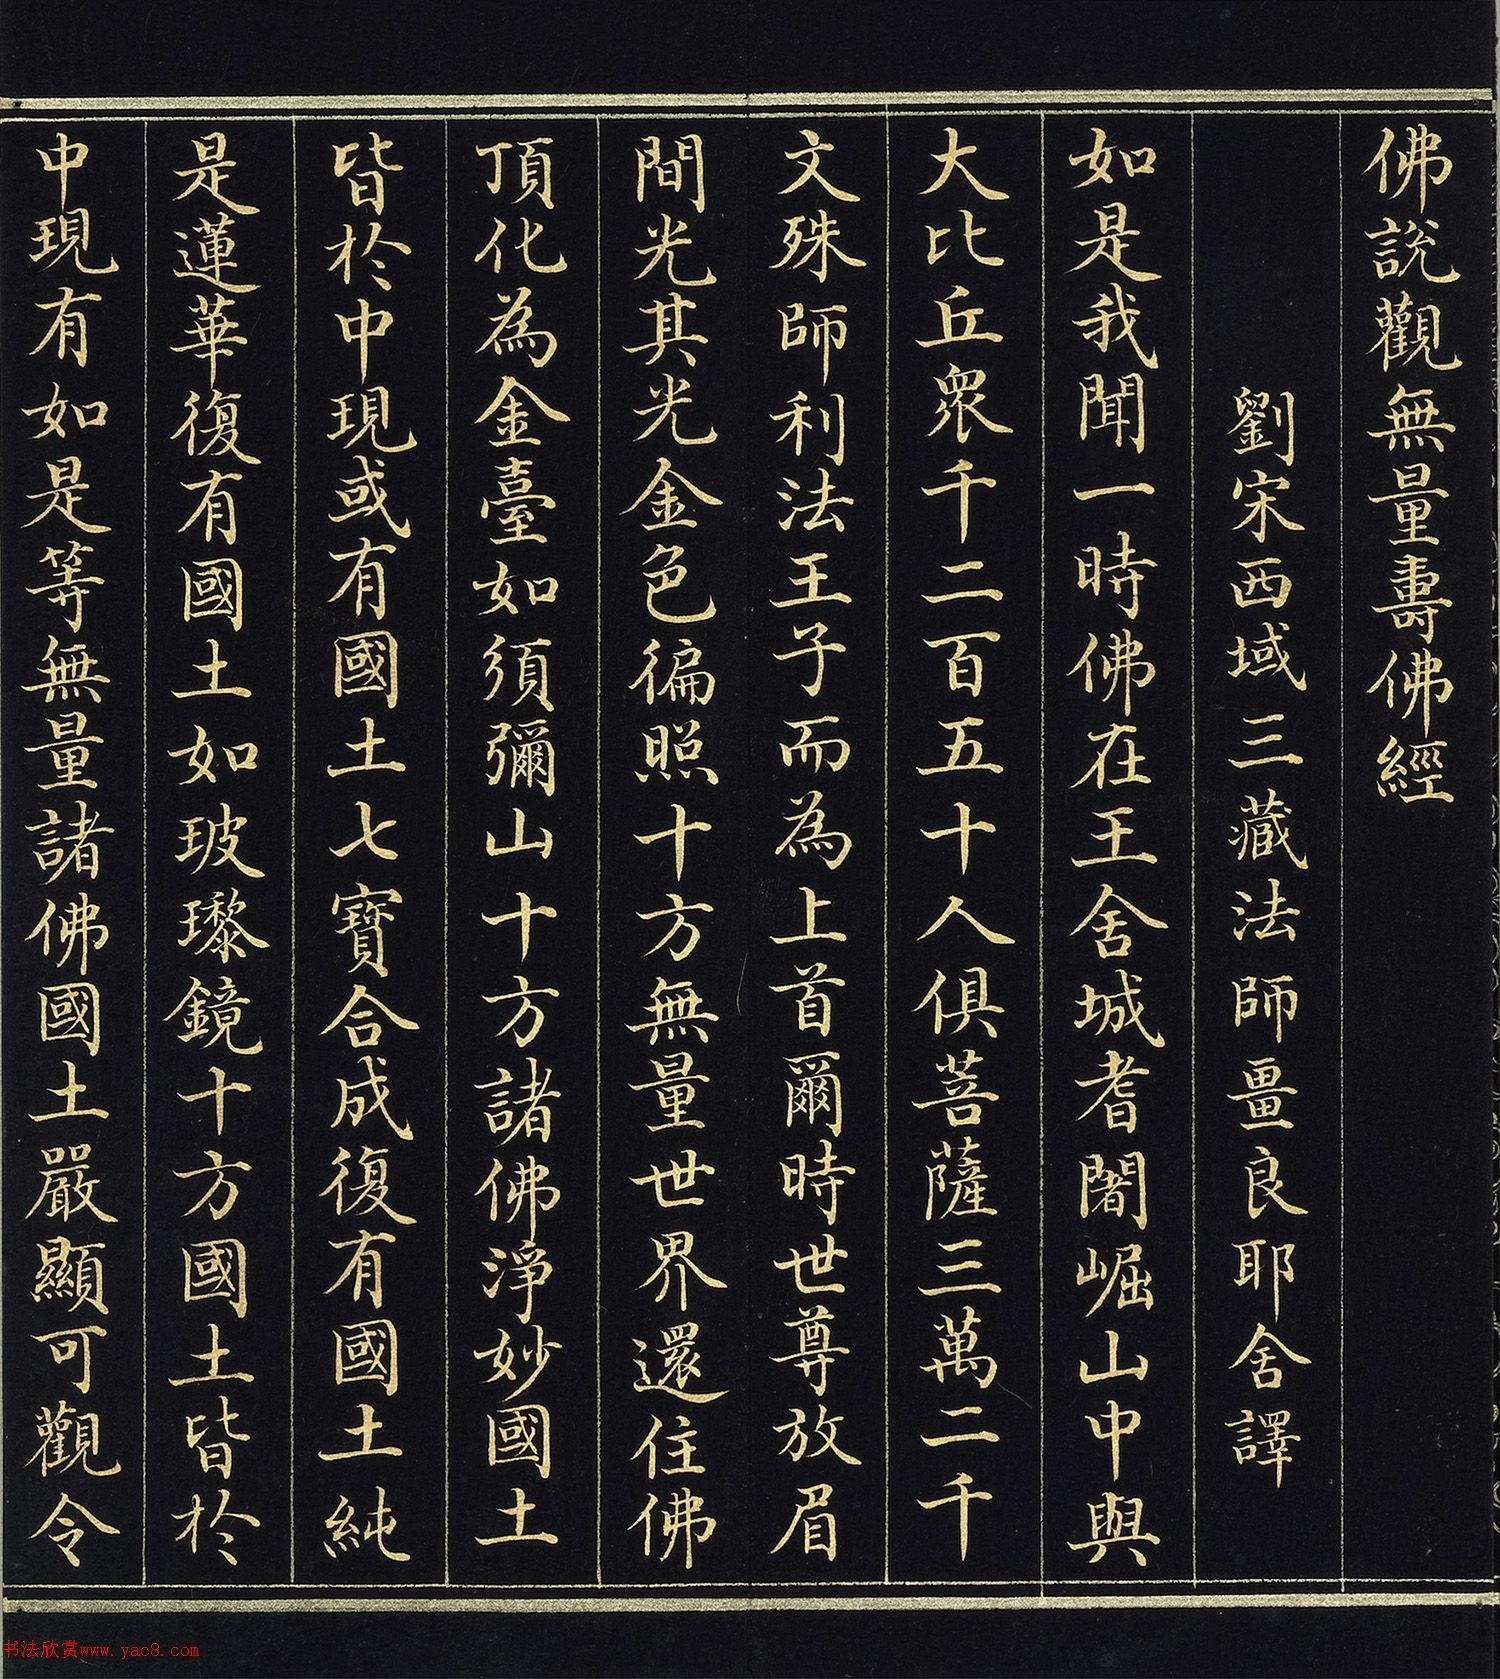 佛說觀無量壽佛經
劉宋西域三藏法師畺良耶舍譯
如是我聞一時佛在王舍城耆闍崛山中與
大比丘眾千二百五十人俱菩薩三萬二千
文殊師利法王子而為上首爾時世尊放眉
間光其光金色徧照十方無量世界還住佛
頂化為金臺如須彌山十方諸佛淨妙國土
皆於中現或有國土七寶合成復有國土純
是蓮華復有國土如玻瓈鏡十方國土皆於
中現有如是等無量諸佛國土嚴顯可觀令
书法欣赏www.yac8.com